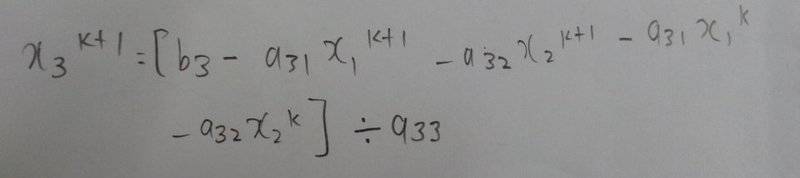 x₃ᵏ⁺¹ = [b₃ - a₃₁x₁ᵏ⁺¹ - a₃₂x₂ᵏ⁺¹ - a₃₁x₁ᵏ
- a₃₂x₂ᵏ] ÷ a₃₃